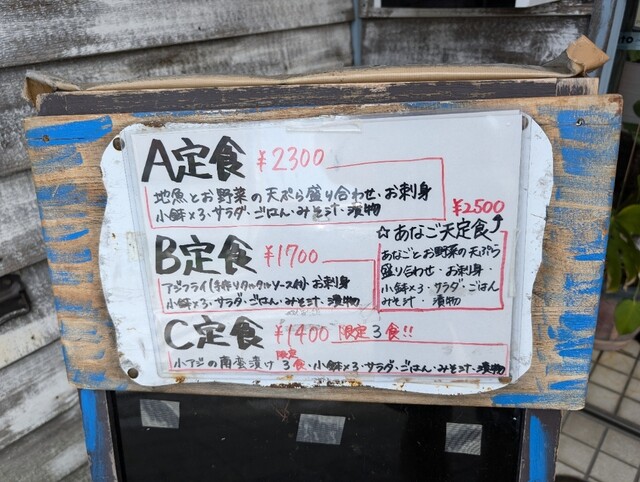 A定食 ¥2300
地魚とお野菜の天ぷら盛り合わせ・お刺身
小鉢×3・サラダ・ごはん・みそ汁・漬物
¥2500
☆あなご天定食
あなごとお野菜の天ぷら
盛り合わせ・お刺身・
小鉢×3・サラダ・ごはん
みそ汁・漬物
B定食 ¥1700
アジフライ(手作りタルタルソース付)・お刺身
小鉢×3・サラダ・ごはん・みそ汁・漬物
C定食 ¥1400 限定3食!!
小アジの南蛮漬け 限定3食・小鉢×3・サラダ・ごはん・みそ汁・漬物